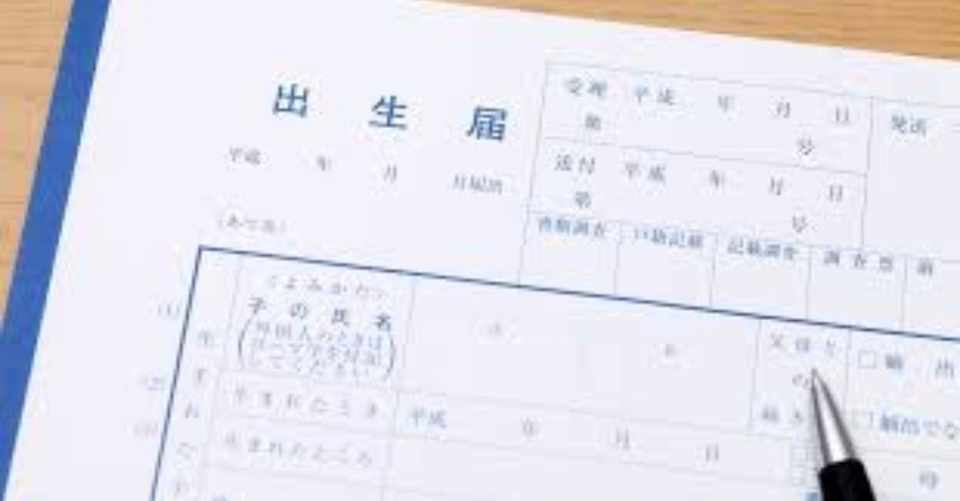 出生届
平成 年 月 日届出
(あて先)
受理 平成 年 月 日
第 号
発送
送付 平成 年 月 日
第 号
書類調査 戸籍記載 記載調査 調査票
(1)
(よみかた)
子の氏名
(外国人のときは
ローマ字を付記
してください)
氏 名
父母と
の
続き
□嫡出
□嫡出でな
(2)
生まれたとき
平成 年 月 日
(3)
生まれたところ
生まれた
母